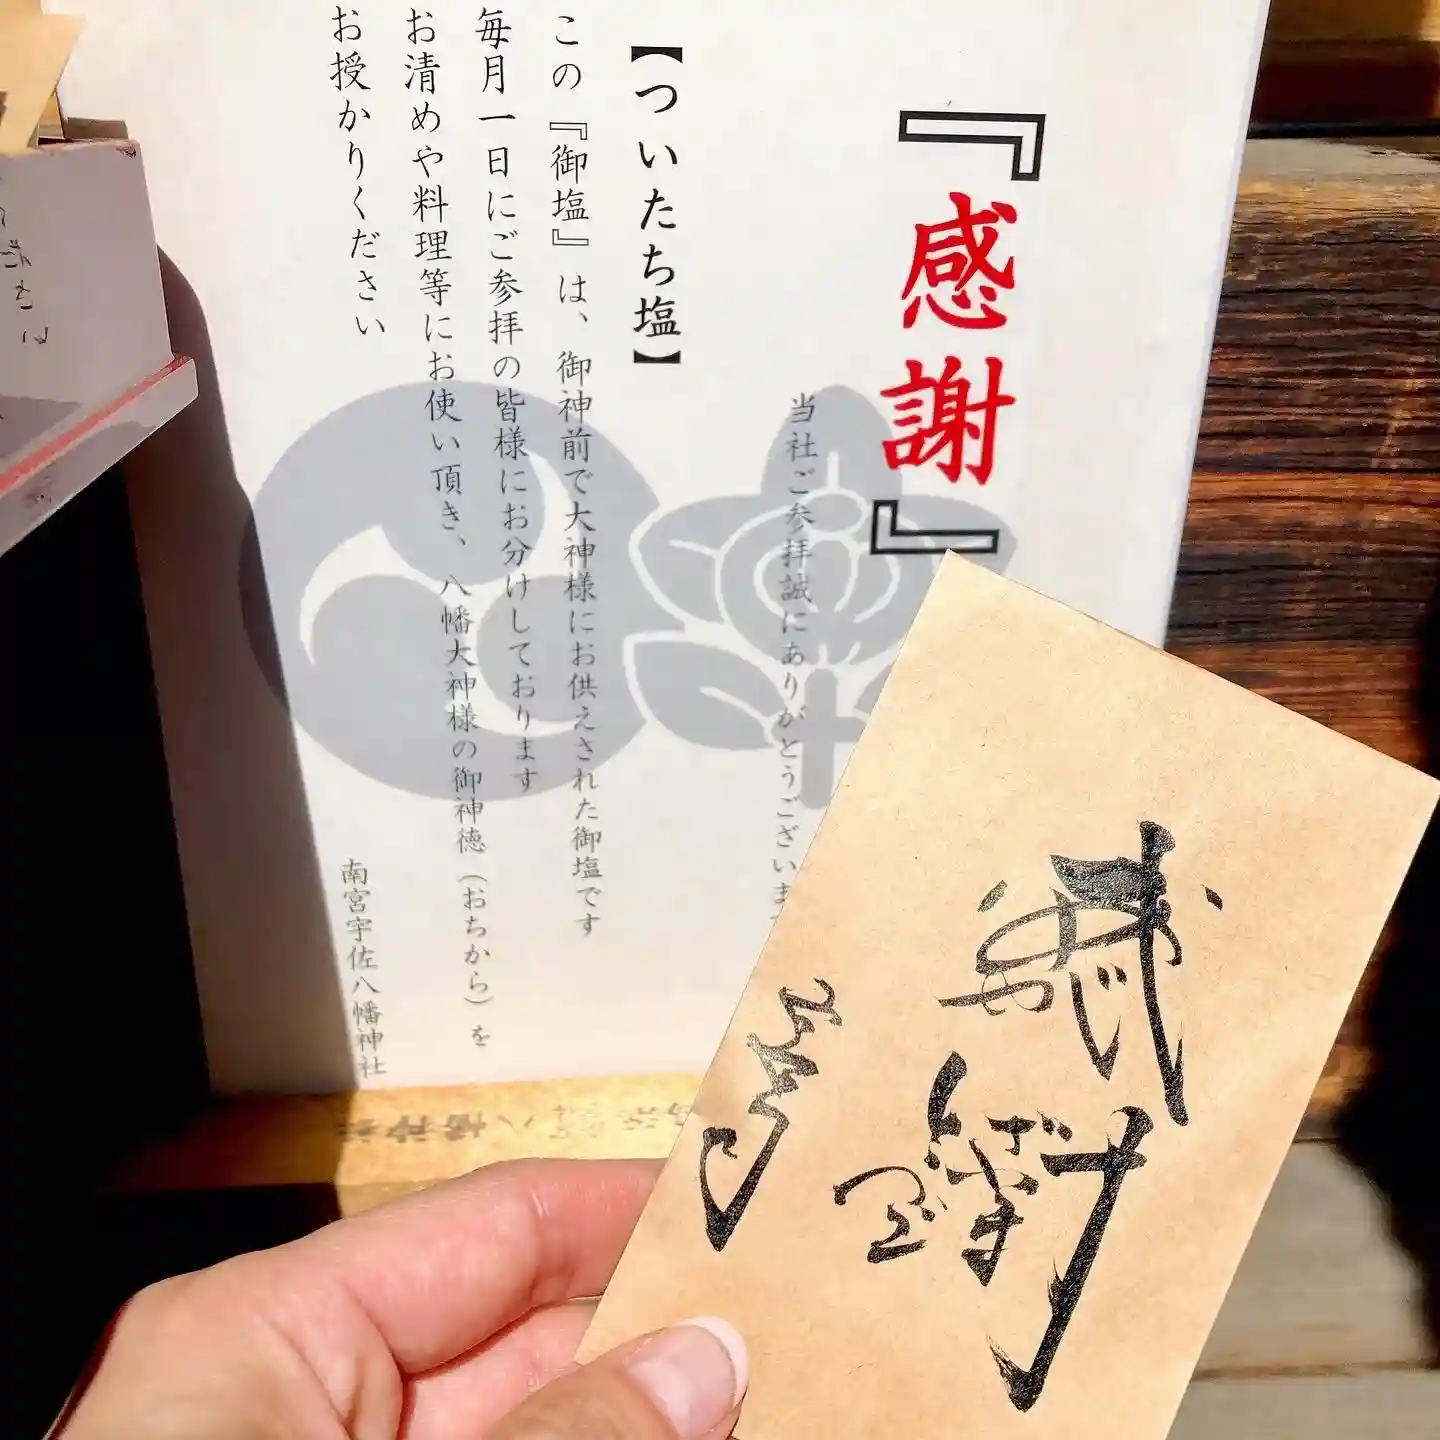 『感謝』
当社ご参拝誠にありがとうございま
【ついたち塩】
この『御塩』は、御神前で大神様にお供えされた御塩です
毎月一日にご参拝の皆様にお分けしております
お清めや料理等にお使い頂き、八幡大神様の御神徳(おちから)を
お授かりください
南宮宇佐八幡神社
感謝